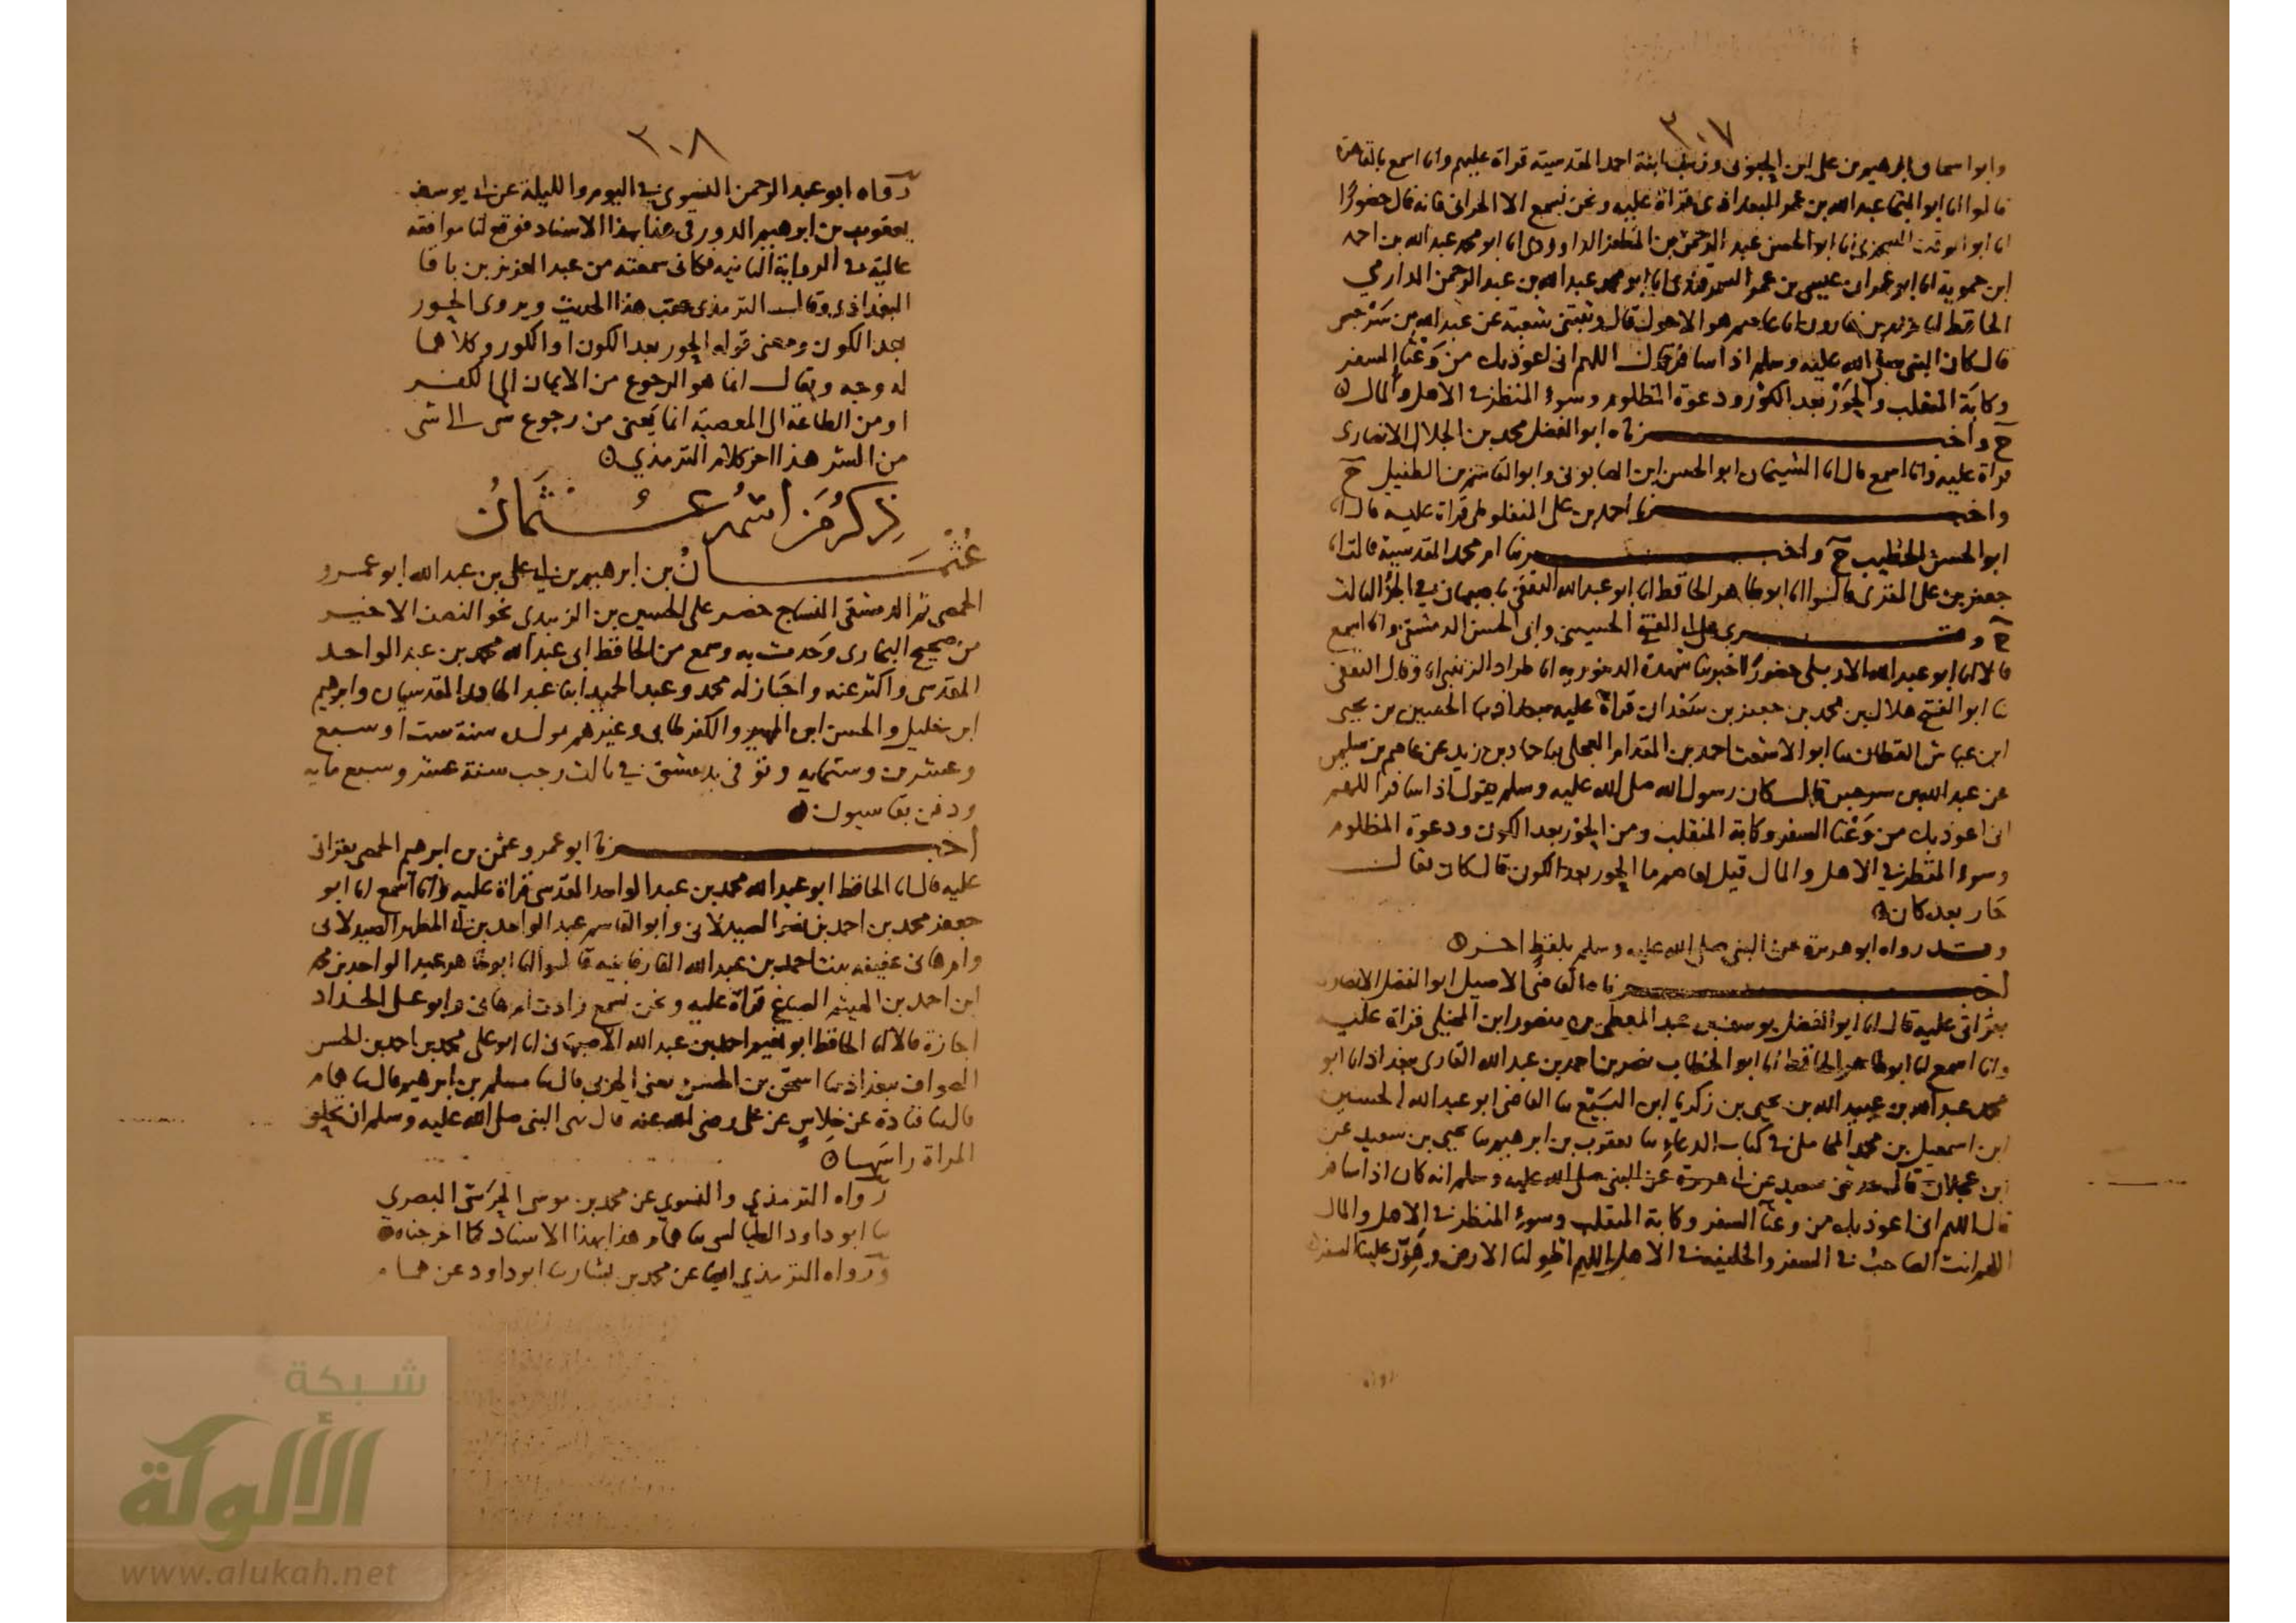 ٣٠٧
وابو اسحاق ابرهيم بن على ابن الحبوبى وزينب ابنة احمد المقدسية قراة عليهم وانا اسمع بالقاهرة
قالوا انا ابو المنجا عبد الله بن عمر البغداذى قراة عليه ونحن نسمع الا الحرانى فانه قال حضورًا
انا ابو الوقت السجزى انا ابو الحسن عبد الرحمن بن المظفر الداوودى انا ابو محمد عبد الله بن احمد
ابن حموية انا ابو عمران عيسى بن عمر السمرقندى انا ابو محمد عبد الله بن عبد الرحمن الدارمي
الحافظ انا يزيد بن هارون انا عاصم هو الاحول قال وثبتنى شعبة عن عبد الله بن سَرْجِس
قال كان النبى صلى الله عليه وسلم اذا سافر قال اللهم انى اعوذ بك من وَعْثَا السفر
وكابَة المنقلب والحَوْر بعد الكَوْر ودعوة المظلوم وسوء المنظر في الاهل والمال
ح واخبرناه ابو الفضل محمد بن الجلال الانصارى
قراة عليه وانا اسمع قال انا الشيخان ابو الحسن ابن الصابونى وابو القاسم بن الطفيل ح
واخبرنا احمد بن على المنفلوطى قراة عليه قال انا
ابو الحسن الخطيب ح واخبرتنا ام محمد المقدسية قالت انا
جعفر بن على المقرى قالوا انا ابو طاهر الحافظ انا ابو عبد الله الثقفى باصبهان في الجزء الثالث
ح وقرى على ابى الفتح الحسينى وابى الحسن الدمشقى وانا اسمع
قالا انا ابو عبد الله الاربلى حضورًا اخبرتنا شهدة الدينورية انا طراد الزينبى انا وقال الثقفى
ثنا ابو الفتح هلال بن محمد بن جعفر بن سَعْدان قراة عليه ببغداذ ثنا الحسين بن يحيى
ابن عياش القطان ثنا ابو الاشعث احمد بن المقدام العجلى ثنا حماد بن زيد عن عاصم بن سليمن
عن عبد الله بن سرجس قال كان رسول الله صلى الله عليه وسلم يقول اذا سافر اللهم
انى اعوذ بك من وَعْثَا السفر وكابة المنقلب ومن الحَوْر بعد الكون ودعوة المظلوم
وسوء المنظر في الاهل والمال قيل لعاصم ما الحور بعد الكون قال كان يقال
حَار بعد كان
وقد رواه ابو هريرة عن النبى صلى الله عليه وسلم بلفظٍ اخر
اخبرناه القاضى الاصيل ابو الفضل الانصارى
بقراتى عليه قال انا ابو الفضل يوسف بن عبد المعطى بن منصور ابن المخيلى قراة عليه
وانا اسمع انا ابو طاهر الحافظ انا ابو الخطاب نصر بن احمد بن عبد الله القارى ببغداذ انا ابو
محمد عبد الله بن عبيد الله بن يحيى بن زكريا ابن البَيِّع ثنا القاضى ابو عبد الله الحسين
ابن اسمعيل بن محمد المحاملى في كتاب الدعاءِ ثنا يعقوب بن ابرهيم ثنا يحيى بن سعيد عن
ابن عجلان قال حدثنى سعيد عن ابى هريرة عن النبى صلى الله عليه وسلم انه كان اذا سافر
قال اللهم انى اعوذ بك من وعثآ السفر وكابة المنقلب وسوء المنظر في الاهل والمال
اللهم انت الصاحبُ في السفر والخليفة في الاهلِ اللهم اطوِ لنا الارض وهَوِّن علينا السفر
رواه
٣٠٨
رواه ابو عبد الرحمن النسوي في اليوم والليلة عن ابى يوسف
يعقوب بن ابرهيم الدورقى هذا بهذا الاسناد فوقع لنا موافقة
عالية في الرواية الثانية فكانى سمعته من عبد العزيز بن باقا
البغداذى وقال الترمذى عقب هذا الحديث ويروى الحور
بعد الكون ومعنى قوله الحور بعد الكون او الكور وكلاهما
له وجه ويقال انما هو الرجوع من الايمان الى الكفر
او من الطاعة الى المعصية انما يَعنى من رجوع شى الى شى
من الشر هذا اخر كلام الترمذي
ذِكْرُ مَنِ اسْمُه عُثْمَانُ
عُثْمَانُ بن ابرهيم بن ابى على بن عبد الله ابو عمرو
الحمصى ثم الدمشقى النساج حضر على الحسين بن الزبيدى نحو النصف الاخير
من صحيح البخارى وحَدث به وسمع من الحافظ ابى عبد الله محمد بن عبد الواحد
المقدسى واكثر عنه واجَاز له محمد وعبد الحميد ابنا عبد الهادى المقدسيان وابرهيم
ابن خليل والحسن ابن المهير والكفرطابى وغيرهم مولده سنة ست او سبع
وعشرين وستمايه وتوفى بدمشق في ثالث رجب سنة عشر وسبع مايه
ودفن بقاسيون
اخبرنا ابو عمرو عثمن بن ابرهيم الحمصى بقراتى
عليه قال انا الحافظ ابو عبد الله محمد بن عبد الواحد المقدسى قراة عليه وانا اسمع انا ابو
جعفر محمد بن احمد بن نصر الصيدلانى وابو القاسم عبد الواحد بن ابى المطهر الصيدلانى
وام هانى عفيفه بنت احمد بن عبد الله الفارفانيه قالوا انا ابو طاهر عبد الواحد بن محمد
ابن احمد بن الهيثم الصباغ قراة عليه ونحن نسمع زادت ام هانى وابو على الحداد
اجازة قالا انا الحافظ ابو نعيم احمد بن عبد الله الاصبهانى انا ابو على محمد بن احمد بن الحسن
الصواف ببغداذ ثنا اسحق بن الحسن يعنى الحربى قال ثنا مسلم بن ابرهيم قال ثنا همام
قال ثنا قتادة عن خِلاسٍ عن على رضى الله عنه قال نهى النبى صلى الله عليه وسلم ان تحلق
المراة راسَها
رواه الترمذي والنسوي عن محمد بن موسى الحَرَشى البصري
ثنا ابو داود الطيالسى ثنا همام هذا بهذا الاسناد كما اخرجناه
ورواه الترمذي ايضا عن محمد بن بشار ثنا ابو داود عن همام
شبكة
الألوكة
www.alukah.net